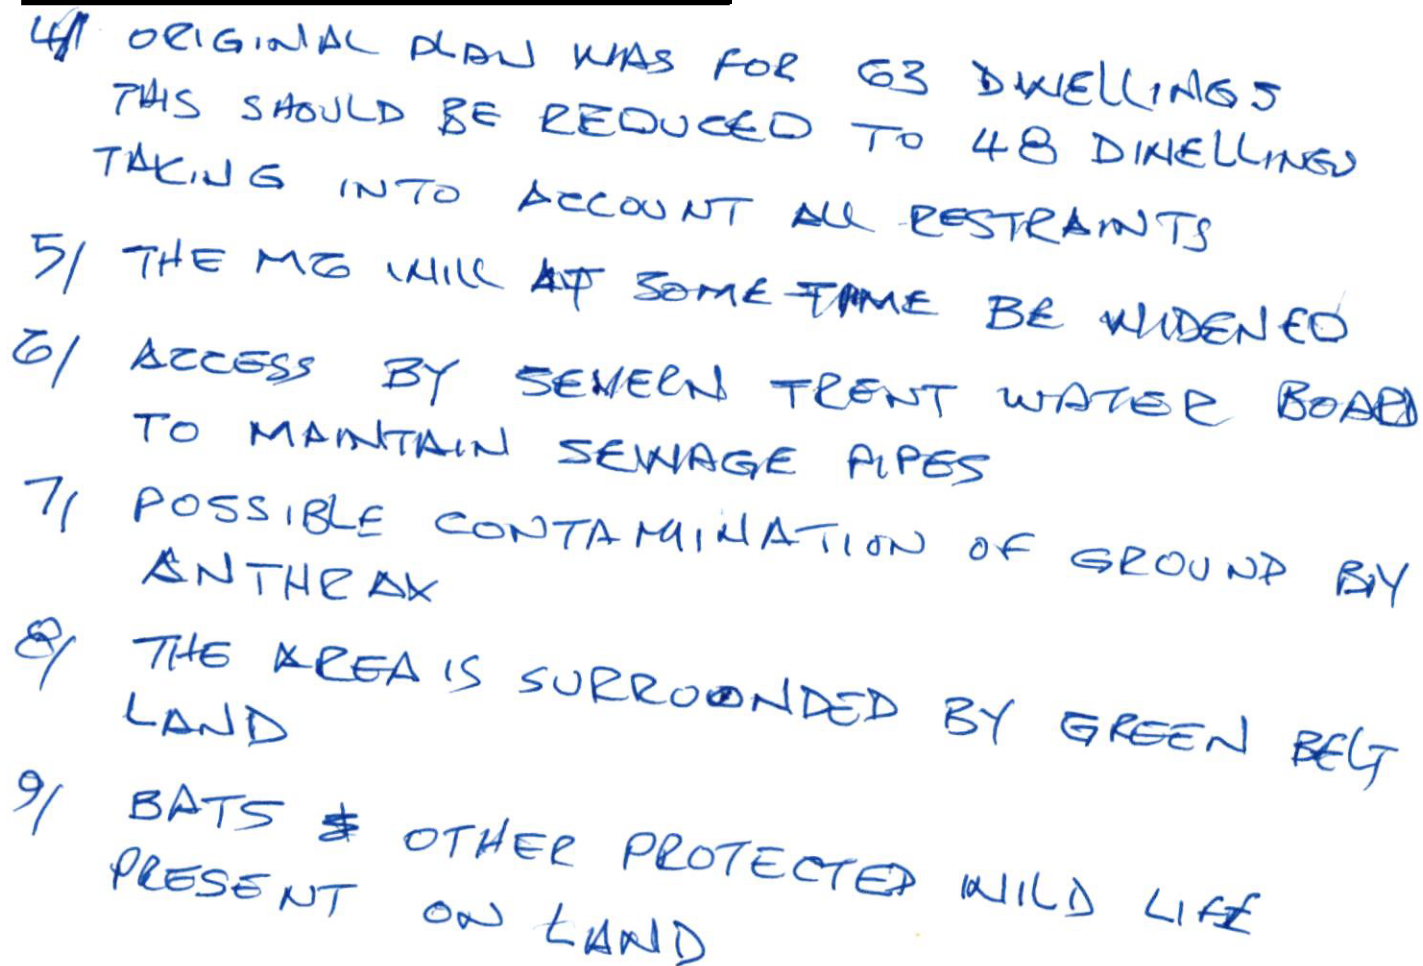 4/ ORIGINAL PLAN WAS FOR 63 DWELLINGS
THIS SHOULD BE REDUCED TO 48 DWELLINGS
TAKING INTO ACCOUNT ALL RESTRAINTS
5/ THE M6 WILL AT SOME TIME BE WIDENED
6/ ACCESS BY SEVERN TRENT WATER BOARD
TO MAINTAIN SEWAGE PIPES
7/ POSSIBLE CONTAMINATION OF GROUND BY
ANTHRAX
8/ THE AREA IS SURROUNDED BY GREEN BELT
LAND
9/ BATS & OTHER PROTECTED WILD LIFE
PRESENT ON LAND